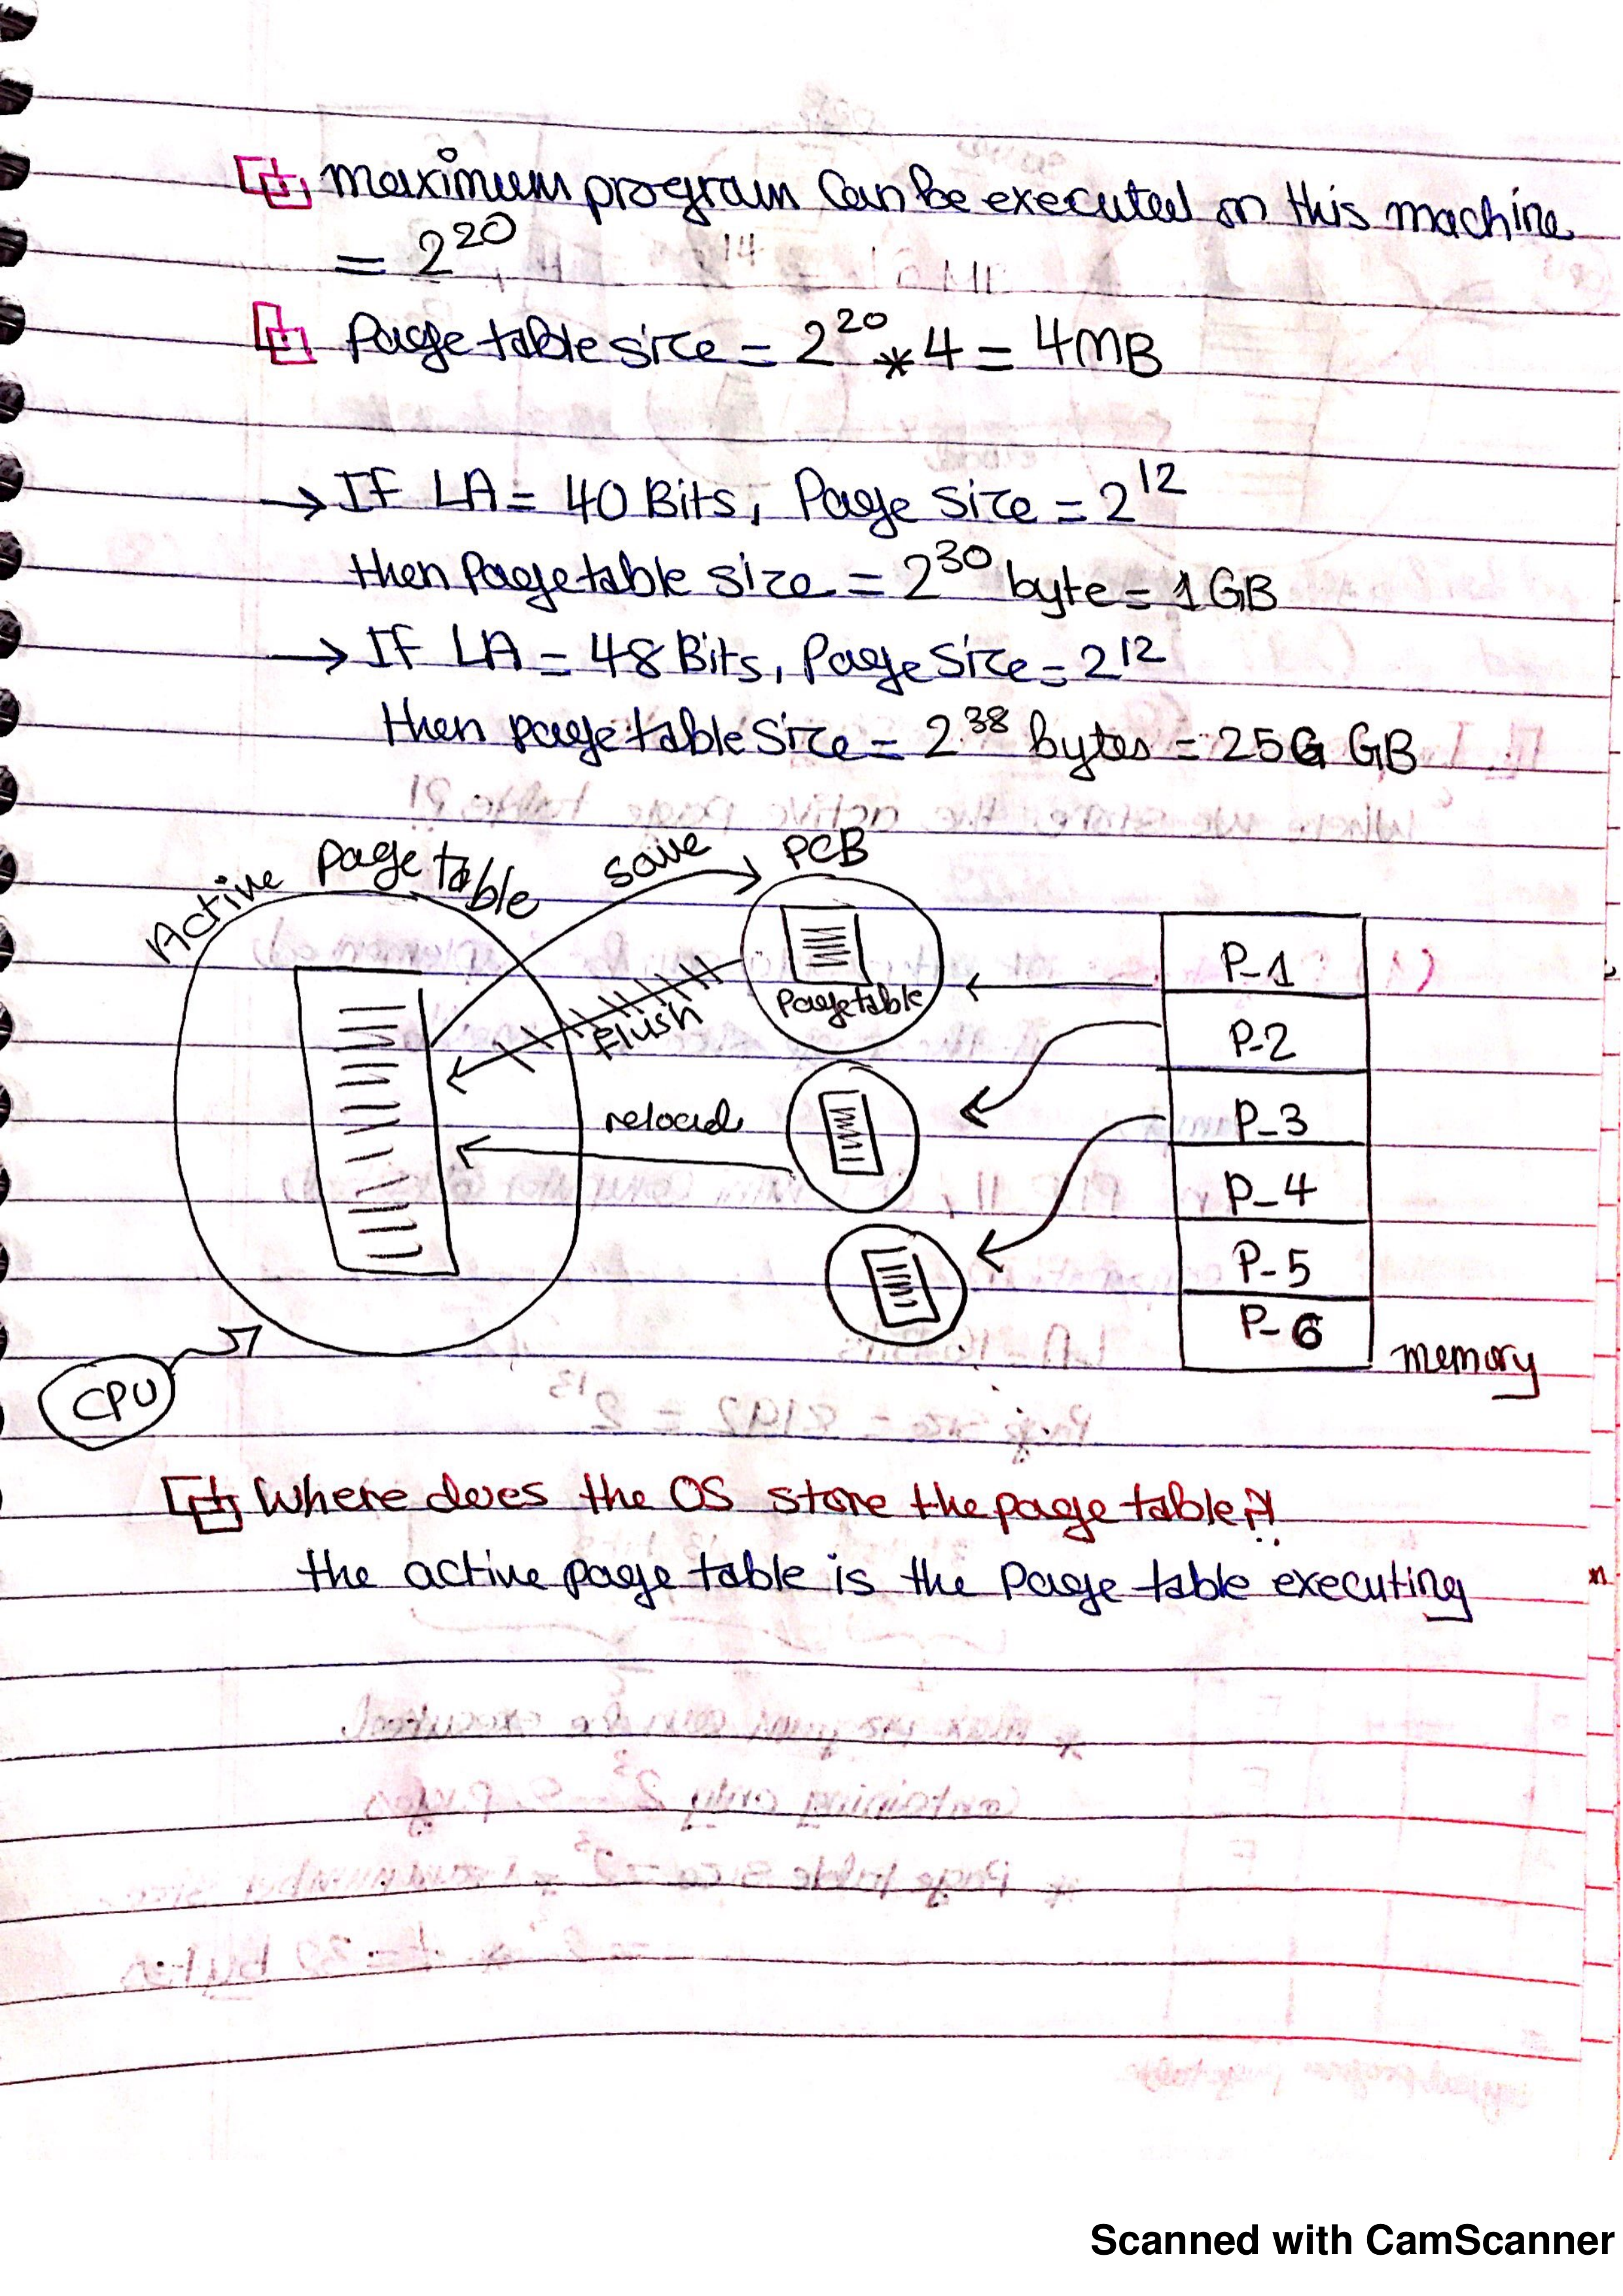 maximum program can be executed on this machine
= 2^20
Page table size = 2^20 * 4 = 4MB
→ IF LA = 40 Bits, Page size = 2^12
then Page table size = 2^30 byte = 1 GB
→ IF LA = 48 Bits, Page Size = 2^12
then page table Size = 2^38 bytes = 256 GB
Active page table
save
PCB
Page table
Flush
reload
P-1
P-2
P-3
P-4
P-5
P-6
memory
CPU
Where does the OS store the page table?!
the active page table is the Page table executing
Scanned with CamScanner